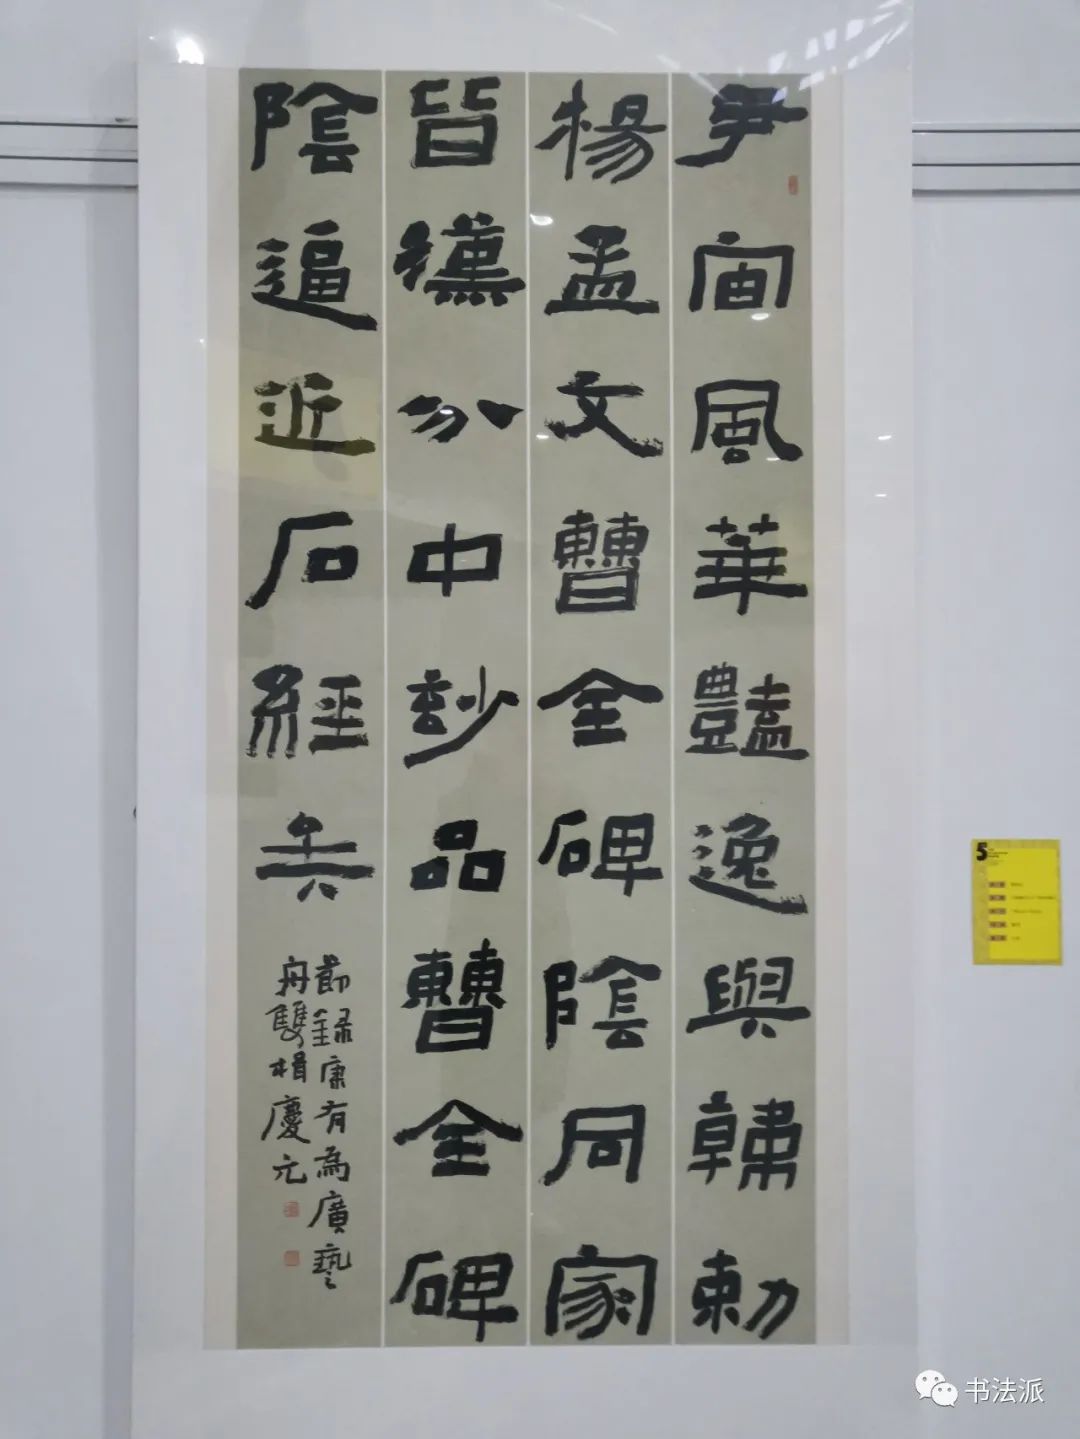 尹宙風華豔逸與韓勅
楊孟文曹全碑陰同家
皆漢分中玅品曹全碑
陰逼近石經矣
節録康有為廣藝
舟雙楫慶元
5
书法派